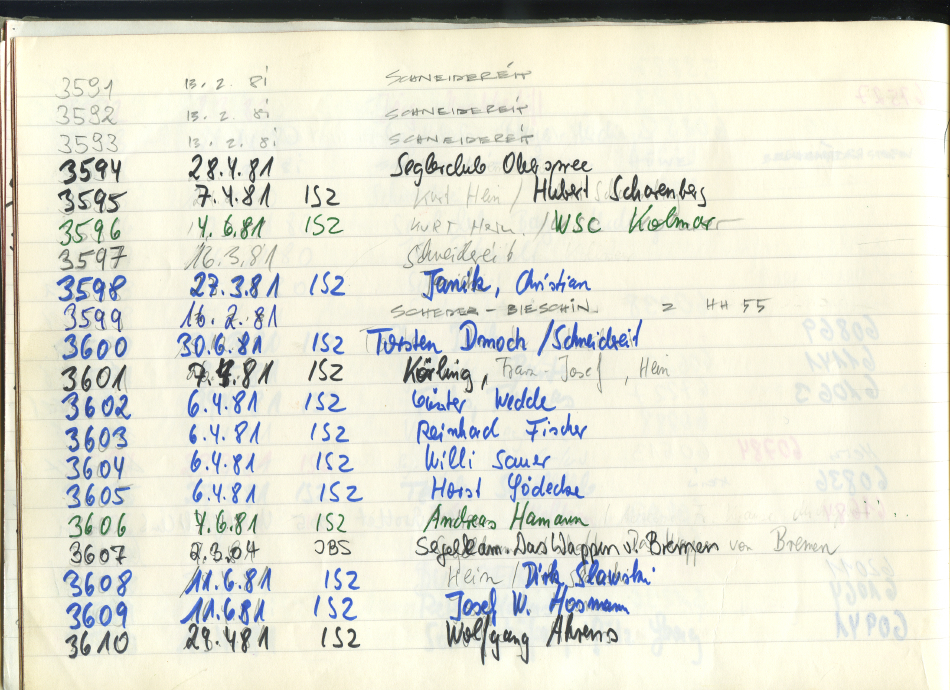 3591 13. 2. 81 SCHNEIDEREIT
3592 13. 2. 81 SCHNEIDEREIT
3593 13. 2. 81 SCHNEIDEREIT
3594 28.4.81 Seglerclub Oberspree
3595 7.4.81 ISZ Kurt Hein / Hubert Scharenberg
3596 4.6.81 ISZ KURT Hein / WSC Kolmar
3597 16.3.81 Schneidereit
3598 27.3.81 ISZ Janik, Christian
3599 13.2.81 SCHEDER - BIESCHIN 2 HH 55
3600 30.6.81 ISZ Torsten Dmoch / Schneidereit
3601 7.4.81 ISZ Körling, Franz-Josef, Hein
3602 6.4.81 ISZ Günter Wedde
3603 6.4.81 ISZ Reinhard Fischer
3604 6.4.81 ISZ Willi Sauer
3605 6.4.81 ISZ Horst Gödecke
3606 4.6.81 ISZ Andreas Hamann
3607 2.3.04 JBS Segelkam. Das Wappen v. Bremen von Bremen
3608 11.6.81 ISZ Hein / Dirk Slawski
3609 11.6.81 ISZ Josef W. Hosmann
3610 29.4.81 ISZ Wolfgang Ahrens